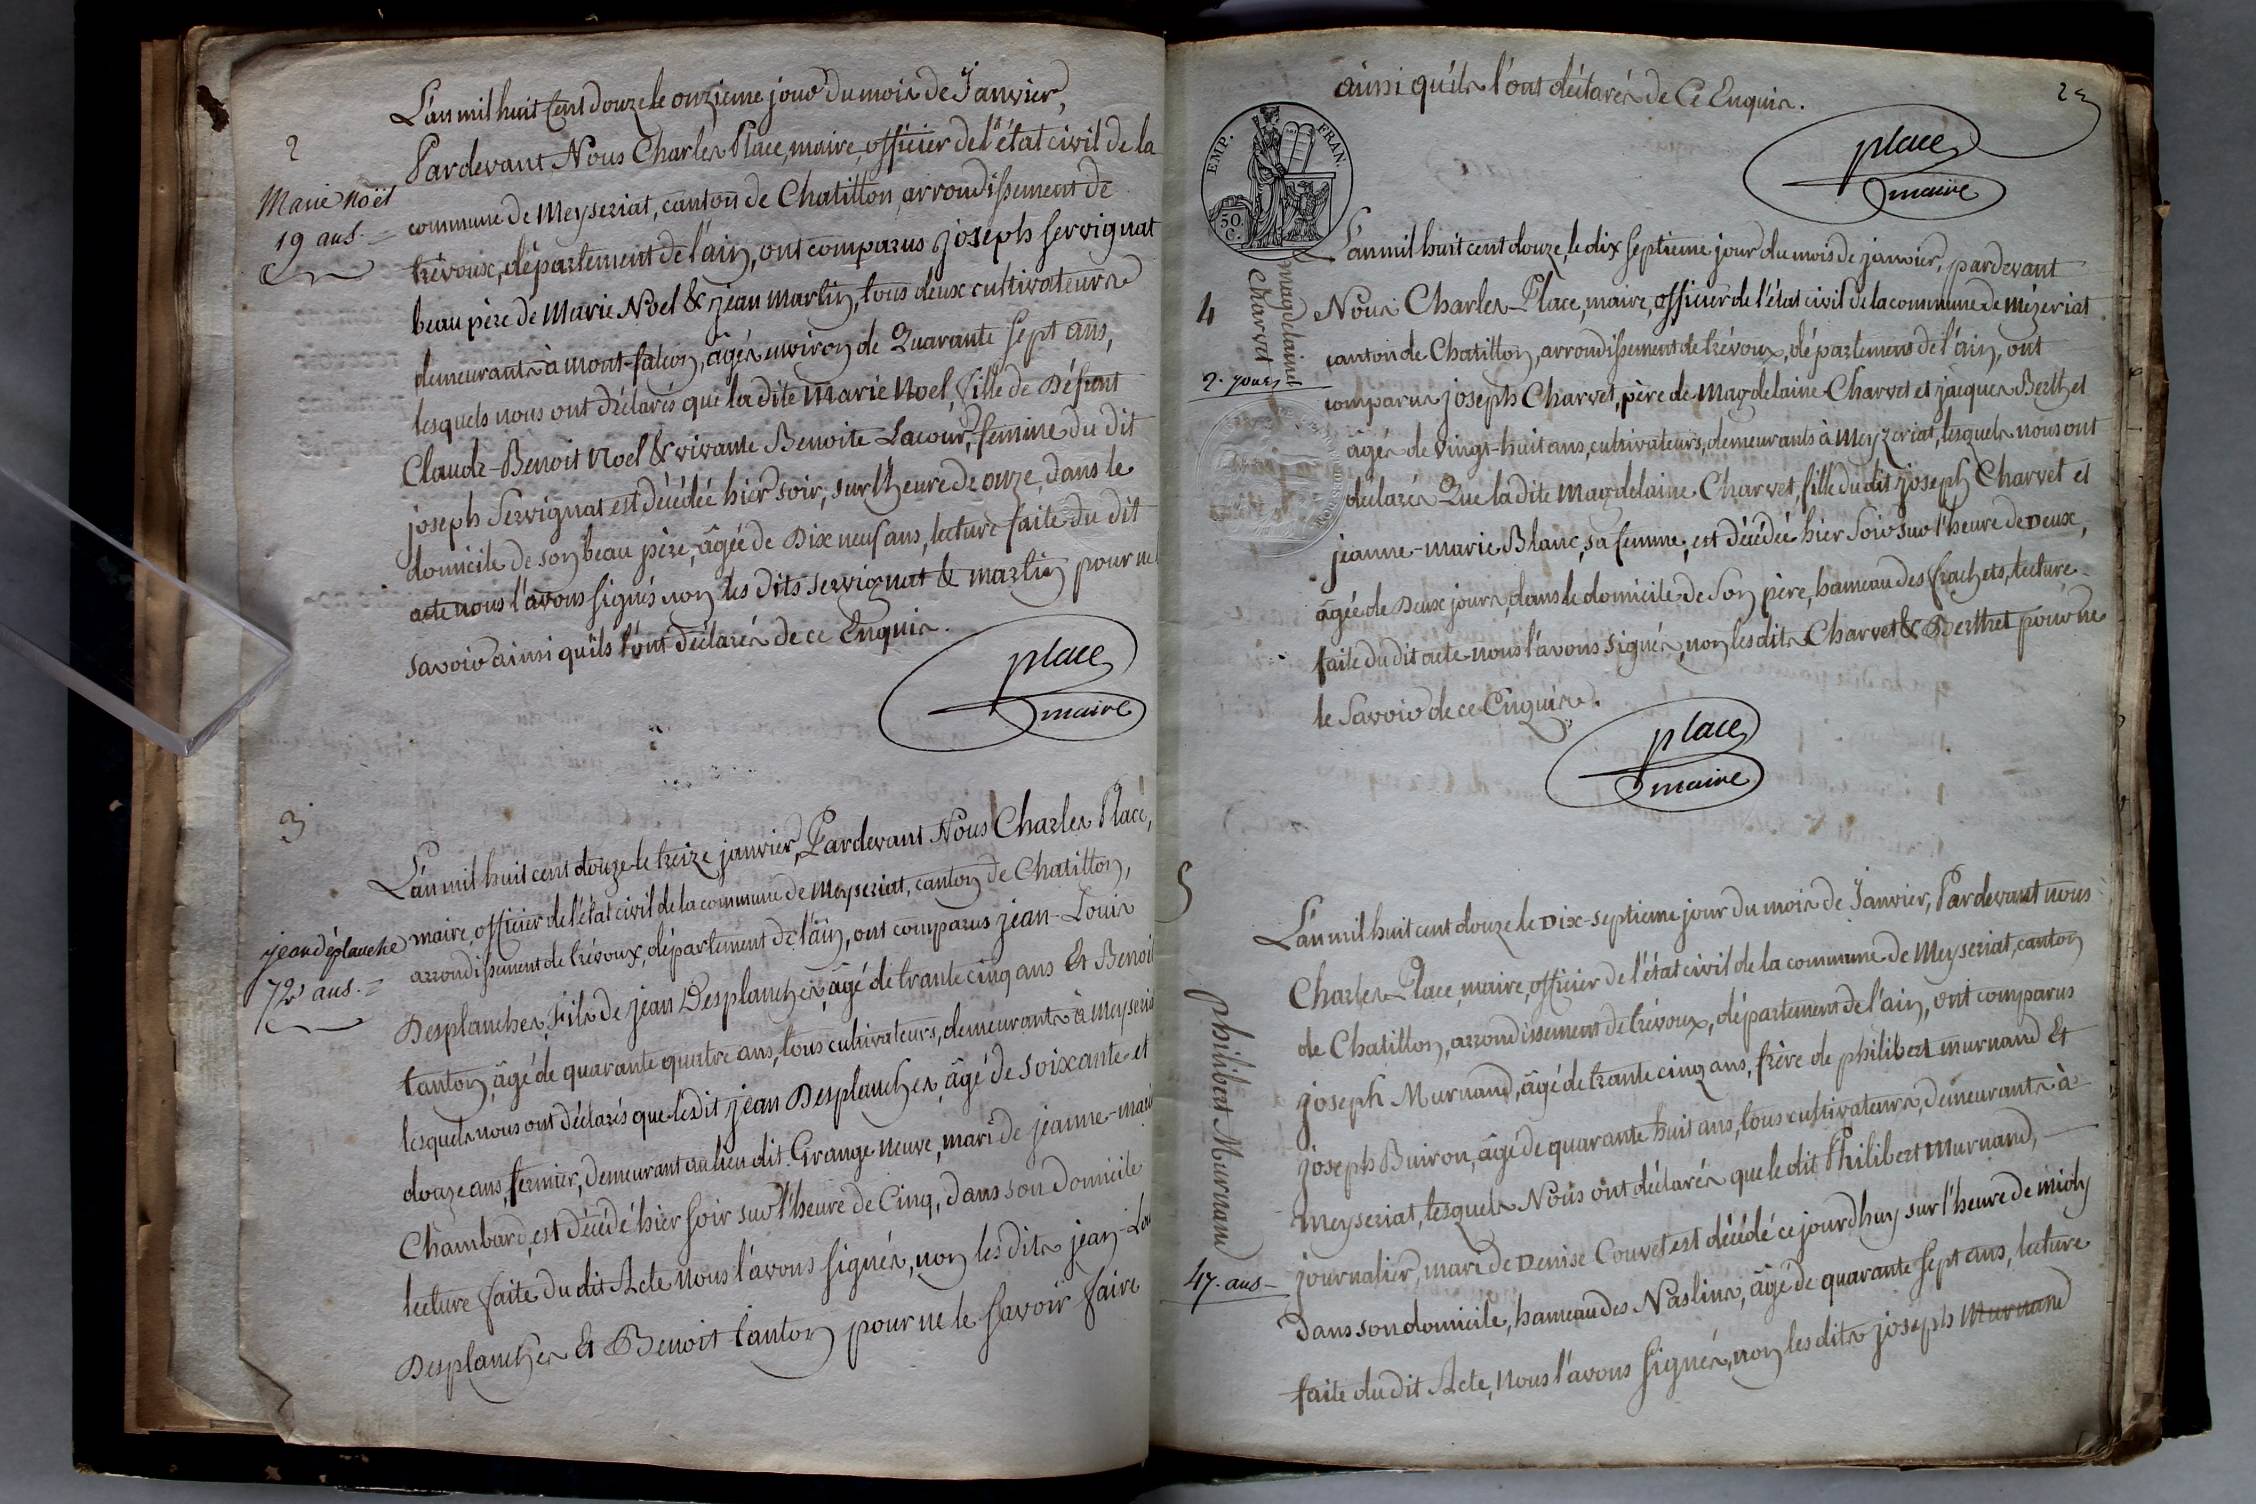 2
Marie Noël
19 ans.
L'an mil huit Cent douze le onzieme jour du mois de Janvier,
Pardevant Nous Charles Place, maire, officier de l'état civil de la
commune de Meyseriat, canton de Chatillon, arrondissement de
trévoux, département de l'ain, ont comparus joseph servignat
beau père de Marie Noel & jean martin, tous deux cultivateurs
demeurants à mont-falcon, âgés environ de Quarante sept ans,
lesquels nous ont déclarés que la dite Marie Noel, fille de défunt
Claude-Benoit Noel & vivante Benoite Lacour, femme du dit
joseph Servignat est décédée hier soir, sur l'heure de onze, dans le
domicile de son beau père, âgée de Dix neuf ans, lecture faite du dit
acte nous l'avons signés non les dits servignat & martin pour ne
savoir ainsi qu'ils l'ont déclarés de ce Enquis.
place
maire
3
jean déplanche
72 ans.
L'an mil huit cent douze le treize janvier, Pardevant Nous Charles Place,
maire, officier de l'état civil de la commune de Meyseriat, canton de Chatillon,
arrondissement de trévoux, département de l'ain, ont comparus jean-Louis
Desplanches, fils de jean Desplanches, âgé de trante cinq ans Et Benoit
tanton, âgé de quarante quatre ans, tous cultivateurs, demeurants à meyseria
lesquels nous ont déclarés que ledit jean Desplanches, âgé de soixante et
douze ans, fermier, demeurant au lieu dit Grange neuve, mari de jeanne-marie
Chambard, est décédé hier soir sur l'heure de Cinq, dans son domicile
lecture faite du dit Acte nous l'avons signés, non les dits jean-Lou
Desplanches Et Benoit tanton pour ne le savoir faire
23
ainsi qu'ils l'ont déclarés de Ce Enquis.
place
maire
EMP. FRAN.
50
C.
4
magdelaine
Charvet
2. jours
L'an mil huit cent douze, le dix septieme jour du mois de janvier, pardevant
Nous Charles Place, maire, officier de l'état civil de la commune de mézeriat
canton de Chatillon, arrondissement de trévoux, département de l'ain, ont
comparus joseph Charvet, père de Magdelaine Charvet et jacques Berthet
âgés de vingt-huit ans, cultivateurs, demeurants à Meyzeriat, lesquels nous ont
déclarés Que la dite Magdelaine Charvet, fille du dit joseph Charvet et
jeanne-marie Blanc, sa femme, est décédée hier Soir sur l'heure de Deux,
âgée de Deux jours, dans le domicile de Son père, hameau des Crachets, lecture
faite du dit acte nous l'avons signés, non les dits Charvet & Berthet pour ne
le Savoir de ce Enquis.
place
maire
5
philibert Murnand
47. ans
L'an mil huit cent douze le Dix-septieme jour du mois de Janvier, Pardevant nous
Charles Place, maire, officier de l'état civil de la commune de Meyseriat, canton
de Chatillon, arrondissement de trévoux, département de l'ain, ont comparus
joseph Murnand, âgé de trante cinq ans, frère de philibert murnand Et
joseph Buiron, âgé de quarante huit ans, tous cultivateurs, demeurants à
meyseriat, lesquels Nous ont déclarés que le dit Philibert Murnand,
journalier, mari de Denise Couvet est décédé ce jourdhuy sur l'heure de midy
Dans son domicile, hameau des Naslins, âgé de quarante sept ans, lecture
faite du dit Acte, nous l'avons signés, non les dits joseph Murnand